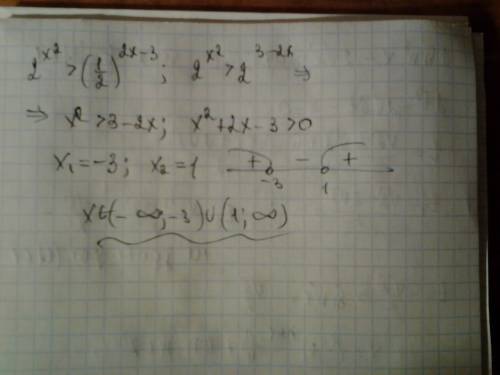 2^{x²} > (1/2)^{2x-3}; 2^{x²} > 2^{3-2x} ⇒
⇒ x² > 3-2x; x²+2x-3>0
x₁=-3; x₂=1 + - + -3 1
x∈(-∞,-3)∪(1;∞)